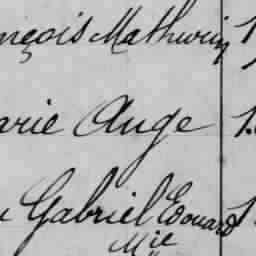 nçois Mathurin 1
arie Ange 1.
Gabriel Edouard 1
Mie